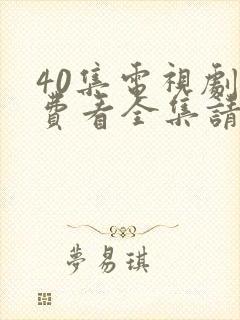 40集電視劇
費看全集請
夢易琪